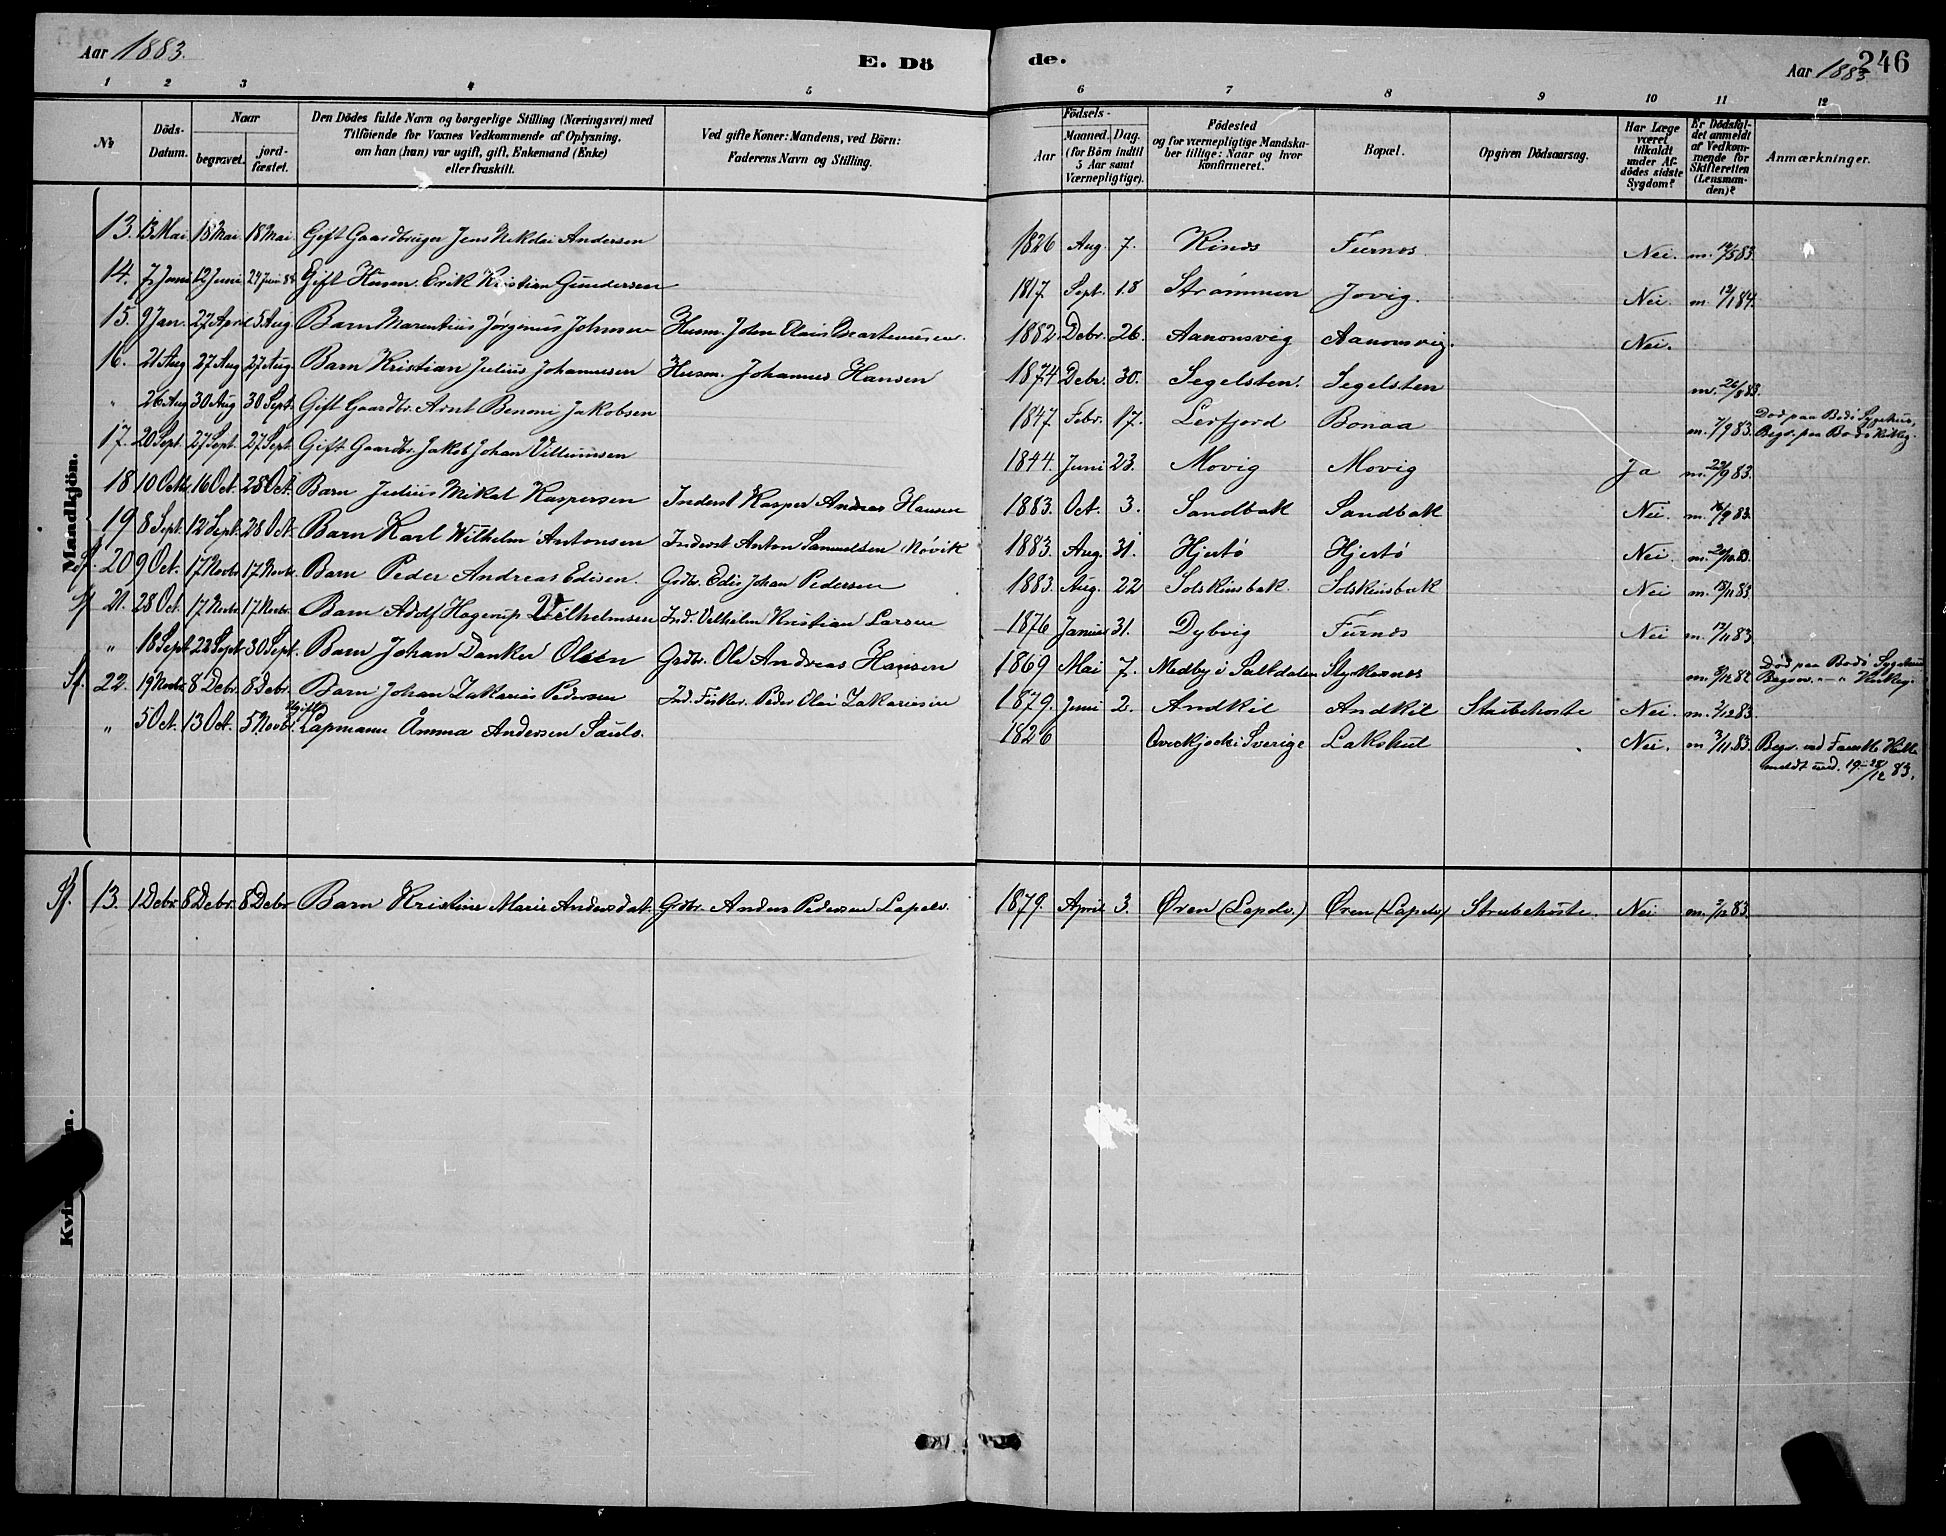 Aar 1883.
E. Dö de.
Aar 1883
246
1 2 3 4 5 6 7 8 9 10 11 12
№
Döds-
Datum.
Naar
begravet.
jord-
fæstet.
Den Dödes fulde Navn og borgerlige Stilling (Næringsvei) med
Tilföiende for Voxnes Vedkommende af Oplysning,
om han (hun) var ugift, gift, Enkemand (Enke)
eller fraskilt.
Ved gifte Koner: Mandens, ved Börn:
Faderens Navn og Stilling.
Födsels-
Aar
Maaned. Dag.
(for Börn indtil
5 Aar samt
Værnepligtige).
Födested
og for værnepligtige Mandska-
ber tillige: Naar og hvor
konfirmeret.
Bopæl.
Opgiven Dödsaarsag.
Har Læge
været
tilkaldt
under Af-
dödes sidste
Sygdom?
Er Dödsfal-
det anmeldt
af Vedkom-
mende for
Skifteretten
(Lensman-
den)?
Anmærkninger.
Mandkjön.
13. 13 Mai 18 Mai 18 Mai Gift Gaardbruger Jens Nikolai Andersen 1826 Aug. 7. Furnes Nei. m. 83.
14. 7 Juni 12 Juni 24 Juni Gift Husm. Erik Kristian Gundersen 1817 Sept. 18 Strømmen Jovig. Nei m. 12/1 84.
15. 9 Jan. 27 April 5 Aug. Barn Marentius Jørginus Johnsen Husm. John Olais 1882 Debr. 26. Aanonsvig Aanonsvig. Nei.
16. 21 Aug 27 Aug 27 Aug. Barn Kristian Julius Johannesen Husm. Johannes Hansen 1874 Debr. 30. Segelsten. Segelsten m. 26/8 83.
" 26 Aug 30 Aug 30 Sept. Gift Gaardbr. Arnt Benoni Jakobsen 1847 Febr. 17. Leifjord Bonaa m. 7/9 83. Död paa Bodö Sygehus,
Begr. paa Bodö
17. 20 Sept. 27 Sept. 27 Sept. Gift Gaardbr. Jakob Johan Villumsen 1844. Juni 23. Movig Movig Ja m. 22/9 83.
18 10 Oct. 16 Oct. 28 Oct. Barn Julius Mikal Kaspersen Inderst Kasper Andreas Hansen 1883. Oct. 3. Sandbak Sandbak Nei. m. 83.
19 8 Sept. 12 Sept. 28 Oct. Barn Karl Wilhelm Antonsen Inderst Anton Samuelsen Növik 1883. Aug. 31. Hjertö Hjertö Nei m. 83.
20 9 Oct. 17 Novbr. 17 Novbr. Barn Peder Andreas Edisen. Grdbr. Edis Johan Pedersen 1883. Aug. 22 Solskinsbak. Solskinsbak Nei m. 83.
21. 28 Oct. 17 Novbr. 17 Novbr. Barn Adolf Hagerup Vilhelmsen Ind. Vilhelm Kristian Larsen 1876 Januar 31. Dybvig Furnes Nei m. 12/11 83.
" 18 Sept 22 Sept 30 Sept. Barn Johan Danker Olsen Grdbr. Ole Andreas Hansen 1869 Mai 7. Medby i Saltdalen Storkersnes m. 82 Död paa Bodö Sygehus
Begr. " "
22. 19 Novbr. 8 Debr. 8 Debr. Barn Johan Zakarias Pedersen Ind. Fisker. Peder Olai Zakariassen 1879. Juni 2. Andkil Andkil Strubehoste Nei. m. 2/12 83.
" 5 Oct. 13 Oct. 5 Novbr. Ugift Lapmann Amma Andersen Sauls. 1826 i Sverige Lakshul Nei. m. 3/11 83. Begr. ved
meldt 19– 28/12 83.
13. 1 Debr 8 Debr. 8 Debr Barn Kristine Marie Andersdat. Grdbr. Anders Pedersen Lapelv. 1879. April 3. Øren (Lapelv.) Øren (Lapelv) Strubehoste. Nei m. 3/12 83.